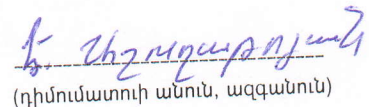 Է. Աշուղաթոյան
(դիմումատուի անուն, ազգանուն)